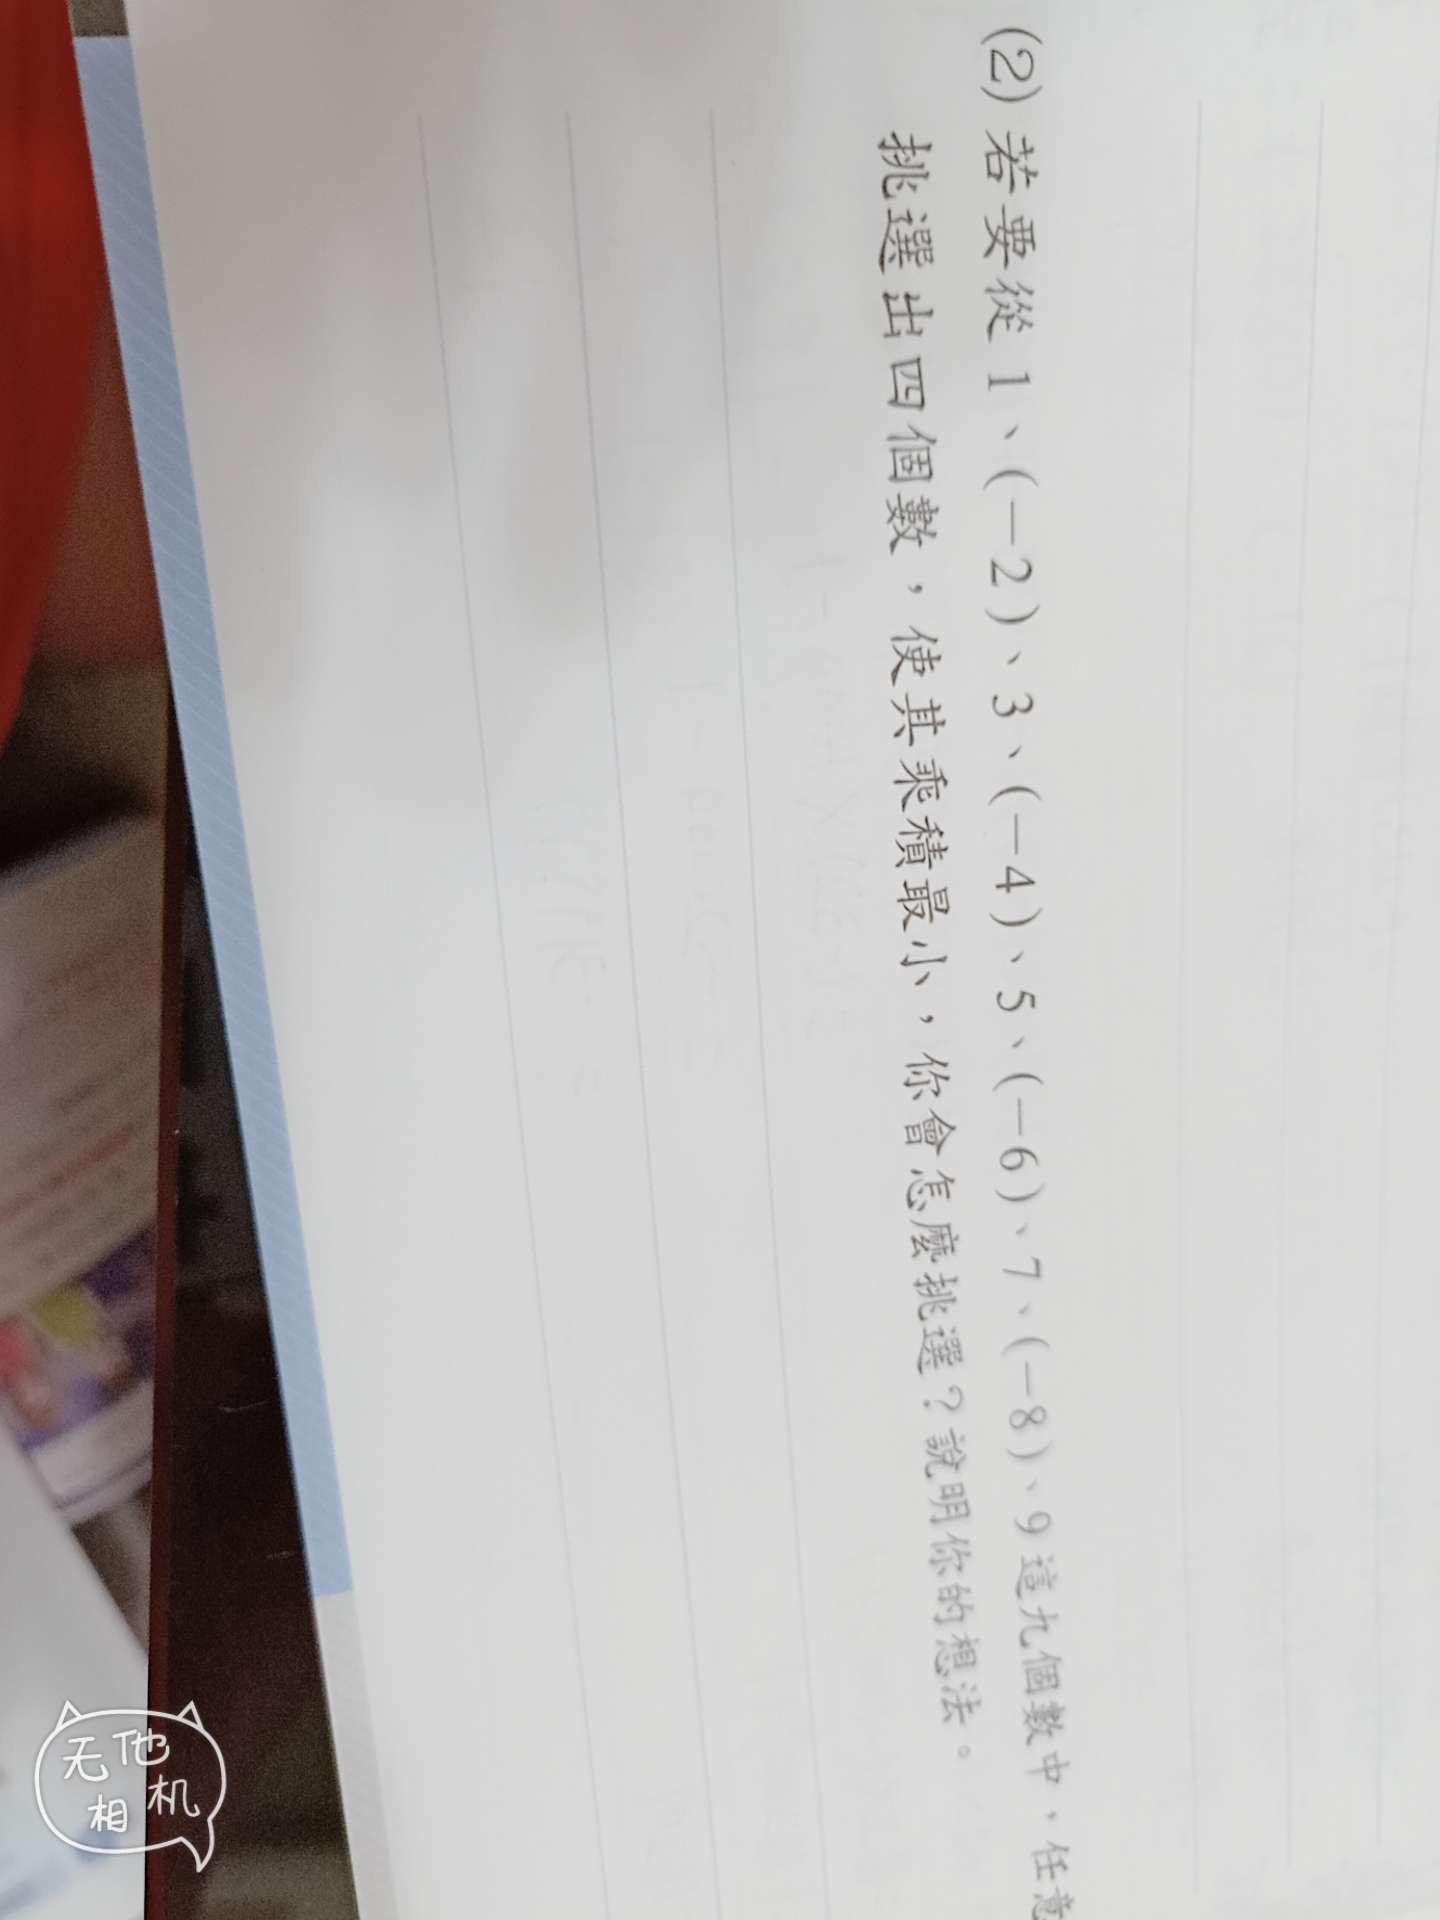 (2) 若要從 1、(−2)、3、(−4)、5、(−6)、7、(−8)、9 這九個數中，任意
挑選出四個數，使其乘積最小，你會怎麼挑選？說明你的想法。
无他
相机